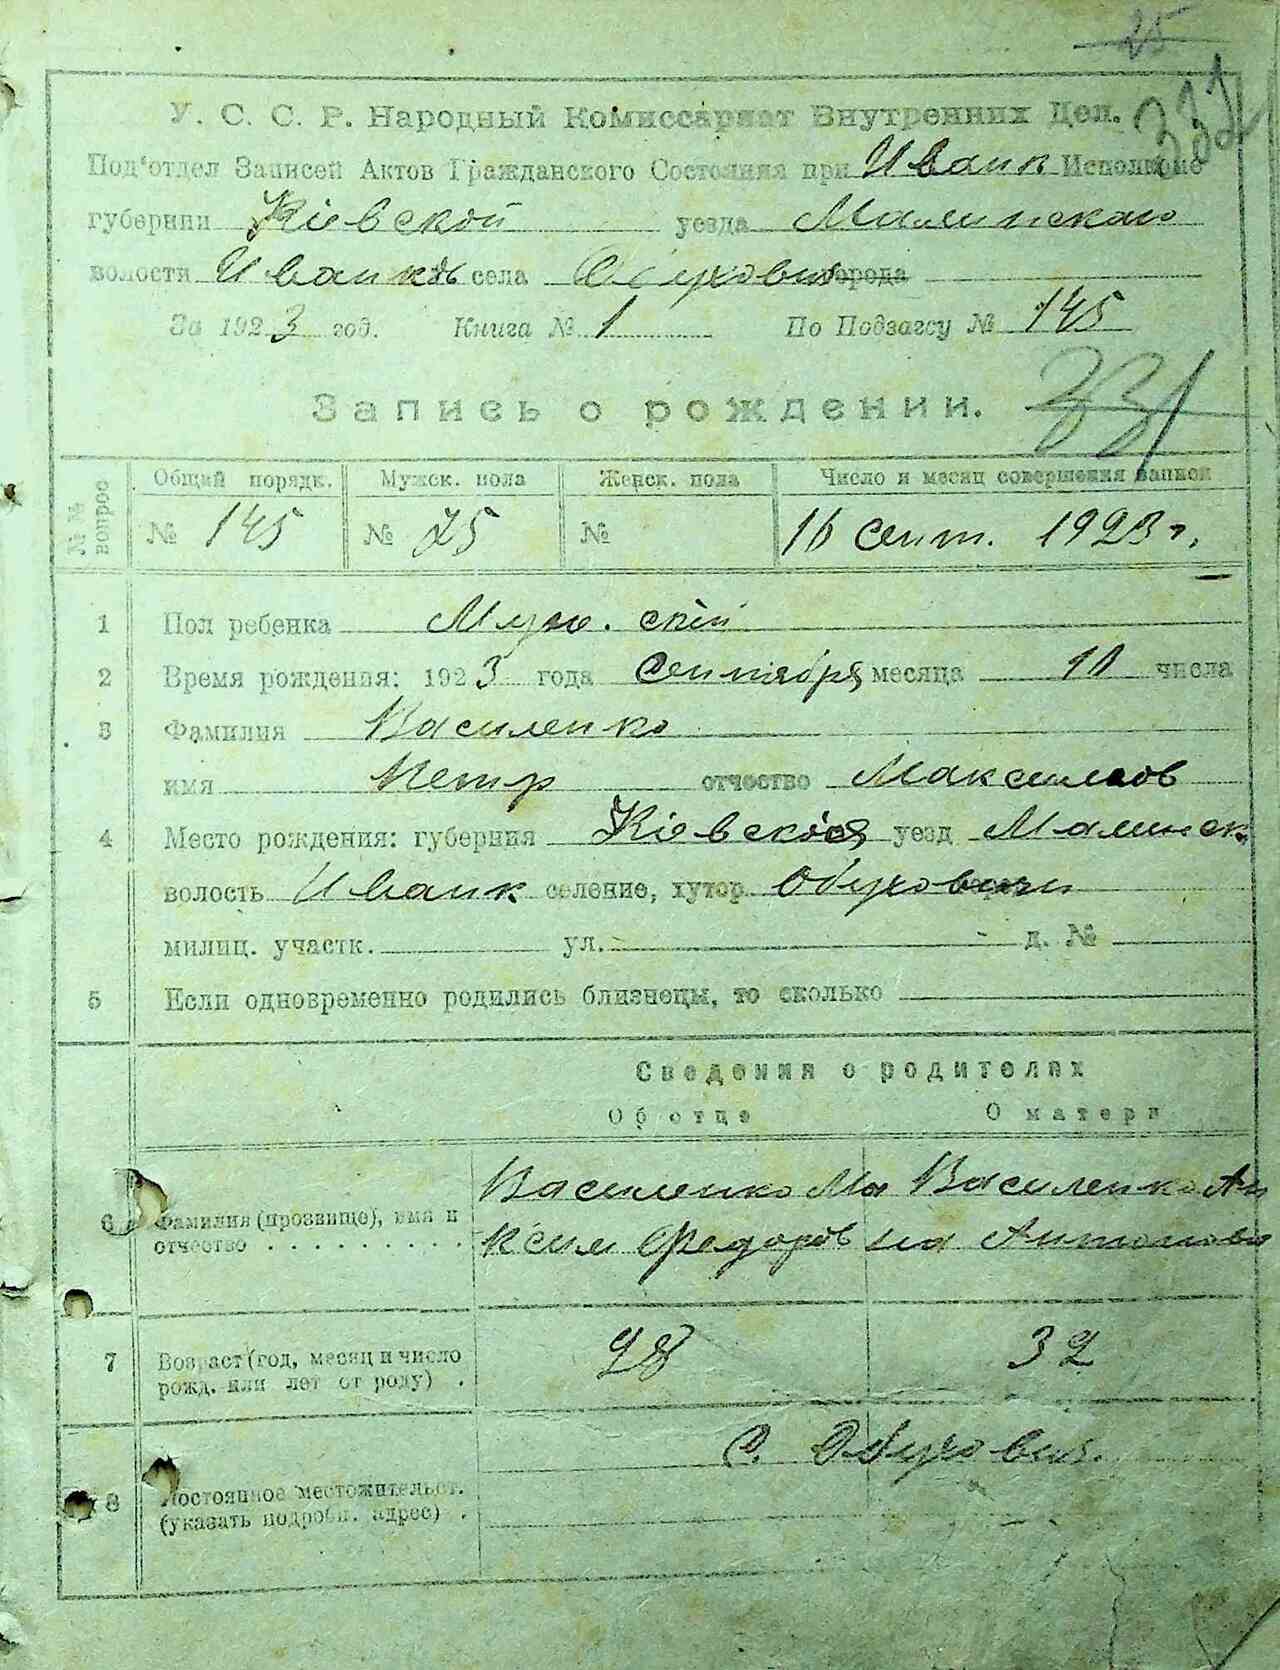 25
У. С. С. Р. Народный Комиссариат Внутренних Дел.
331
Под'отдел Записей Актов Гражданского Состояния при Иванк Исполкоме
губернии Кіевской уезда Малинскаго
волости Иванковь села Обуховичи города
За 1923 год. Книга № 1 По Подзагсу № 145
Запись о рождении.
331
№№ вопрос
Общий порядк. Мужск. пола Женск. пола Число и месяц совершения записи
№ 145 № 75 № 16 сент. 1923 г.
1 Пол ребенка Муж. скій
2 Время рождения: 1923 года Сентября месяца 10 числа
3 Фамилия Василенко
имя Петр отчество Максимов
4 Место рождения: губерния Кіевская уезд Малинск
волость Иванк селение, хутор Обуховичи
милиц. участк. ул. д. №
5 Если одновременно родились близнецы, то сколько
Сведения о родителях
Об отце О матери
6 Фамилия (прозвище), имя и отчество
Василенко Ма Василенко Ан
ксим Федоров на Антонова
7 Возраст (год, месяц и число рожд. или лет от роду) . 28 32
С. Обухович.
8 Постоянное местожительст. (указать подробн. адрес) .